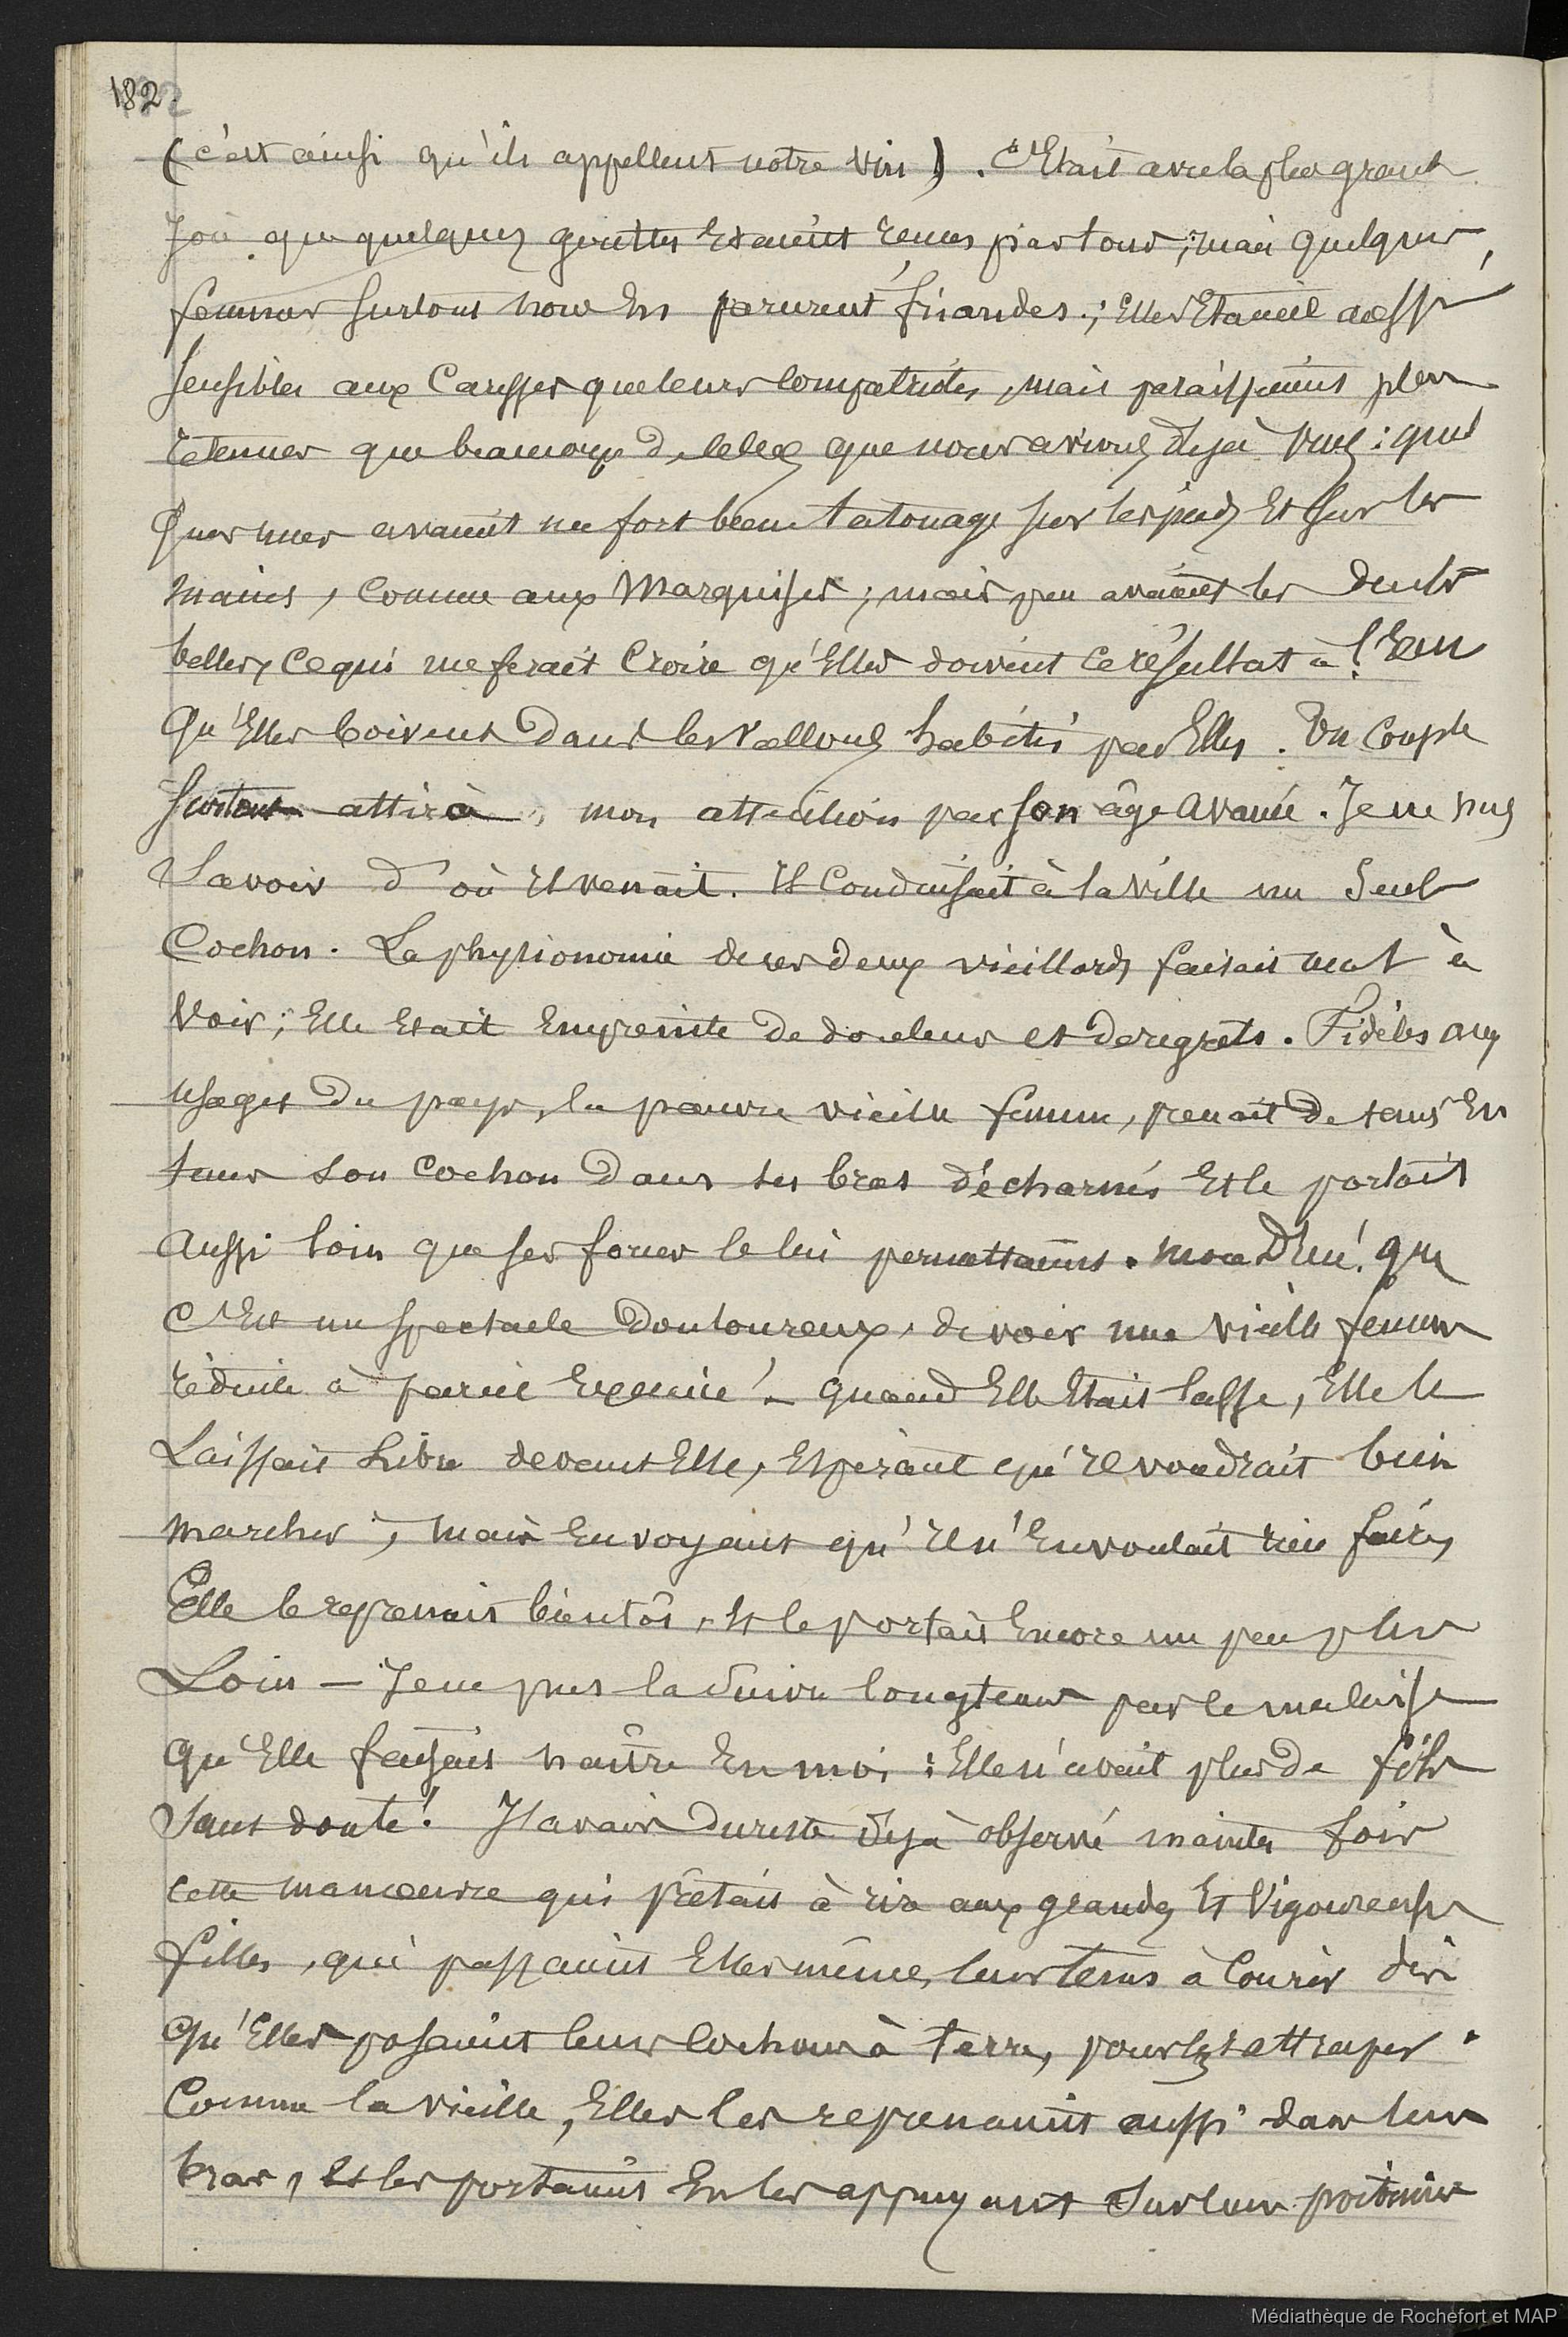 182
(c'est ainsi qu'ils appellent notre vin). C'Etait avec la plus grande
Joie que quelques gouttes Etaient reçues partout; mais quelques
femmes surtout nous En parurent friandes; Elles Etaient aussi
sensibles aux Caresses que leurs Compatriotes, mais paraissaient plus
retenues que beaucoup de celles que nous avions deja vues: quel
ques unes avaient un fort beau tatouage sur les pieds Et sur les
mains, Comme aux Marquises; mais peu avaient les dents
belles, Ce qui me ferait Croire qu'Elles doivent Ce résultat à l'Eau
qu'Elles boivent Dans les Vallons habités par Elles. Un Couple
surtout attira mon attention par son âge avancé. Je ne pus
Savoir d'où Il venait. Il Conduisait à la Ville un Seul
Cochon. La physionomie de ces deux vieillards faisait mal à
Voir; Elle Etait Empreinte de douleur et de regrets. Fidèles aux
usages Du pays, la pauvre vieille femme, prenait De tems En
tems son Cochon Dans ses bras décharnés Et le portait
Aussi loin que ses forces le lui permettaient. Mon Dieu! que
C'Est un spectacle Douloureux, de voir une vieille femme
réduite à pareil Exercice! - quand Elle Etait lasse, Elle le
Laissait Libre devant Elle, Espérant qu'Il voudrait bien
marcher, mais En voyant qu'Il n'En voulait rien faire,
Elle le reprenait bientôt, Et le portait Encore un peu plus
Loin - Je ne pus la Suivre longtems par le malaise
qu'Elle faisait naître En moi: Elle n'avait plus de fils
Sans doute! J'avais Du reste déjà observé maintes fois
Cette manoeuvre qui prêtait à rire aux grandes Et Vigoureuses
filles, qui passaient Elles même, leurs tems à Courir dès
qu'Elles posaient leurs Cochons à terre, pour les attraper.
Comme la Vieille, Elles les reprenaient aussi dans leurs
bras, Et les portaient En les appuyant Sur leur poitrine
Médiathèque de Rochefort et MAP